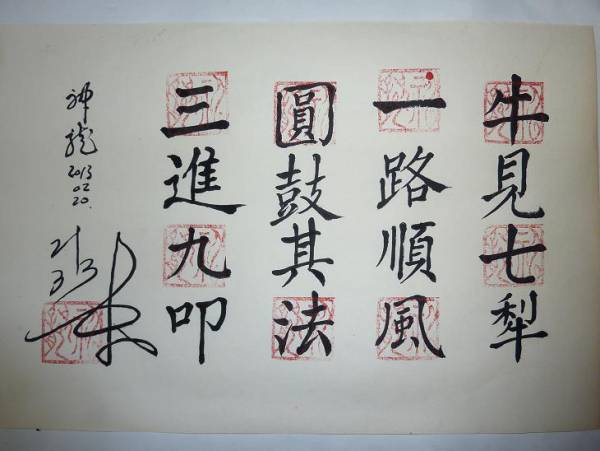 牛見七犁
一路順風
圓鼓其法
三進九叩
神龍
2013
02
20.